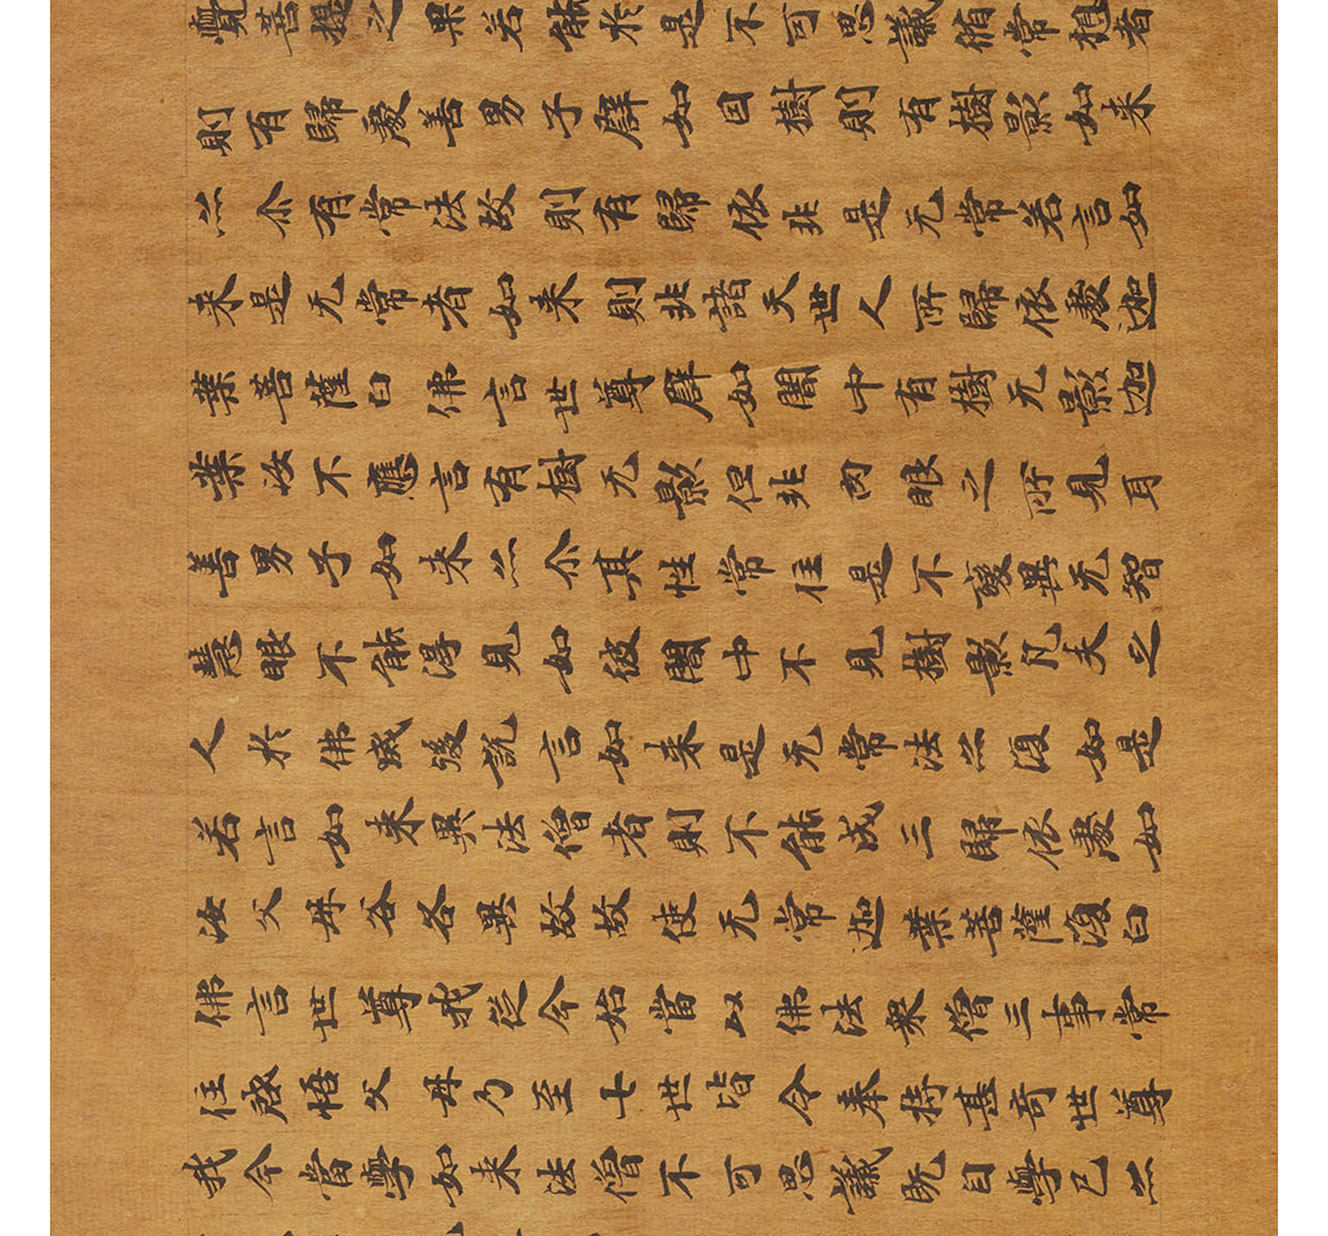 覺菩提之果若能於是不可思議脩常想者
則有歸處善男子辟如因樹則有樹影如来
亦尒有常法故則有歸依非是无常若言如
来是无常者如来則非諸天世人所歸依處迦
葉菩薩白佛言世尊辟如闇中有樹无影迦
葉汝不應言有樹无影但非肉眼之所見耳
善男子如来亦尒其性常住是不變異无智
慧眼不能得見如彼闇中不見樹影凡夫之
人於佛滅後説言如来是无常法亦復如是
若言如来異法僧者則不能成三歸依處如
汝父母谷各異故故使无常迦葉菩薩復白
佛言世尊我從今始當以佛法衆僧三事常
住啓悟父母乃至七世皆令奉持甚奇世尊
我今當學如来法僧不可思議既自學已亦